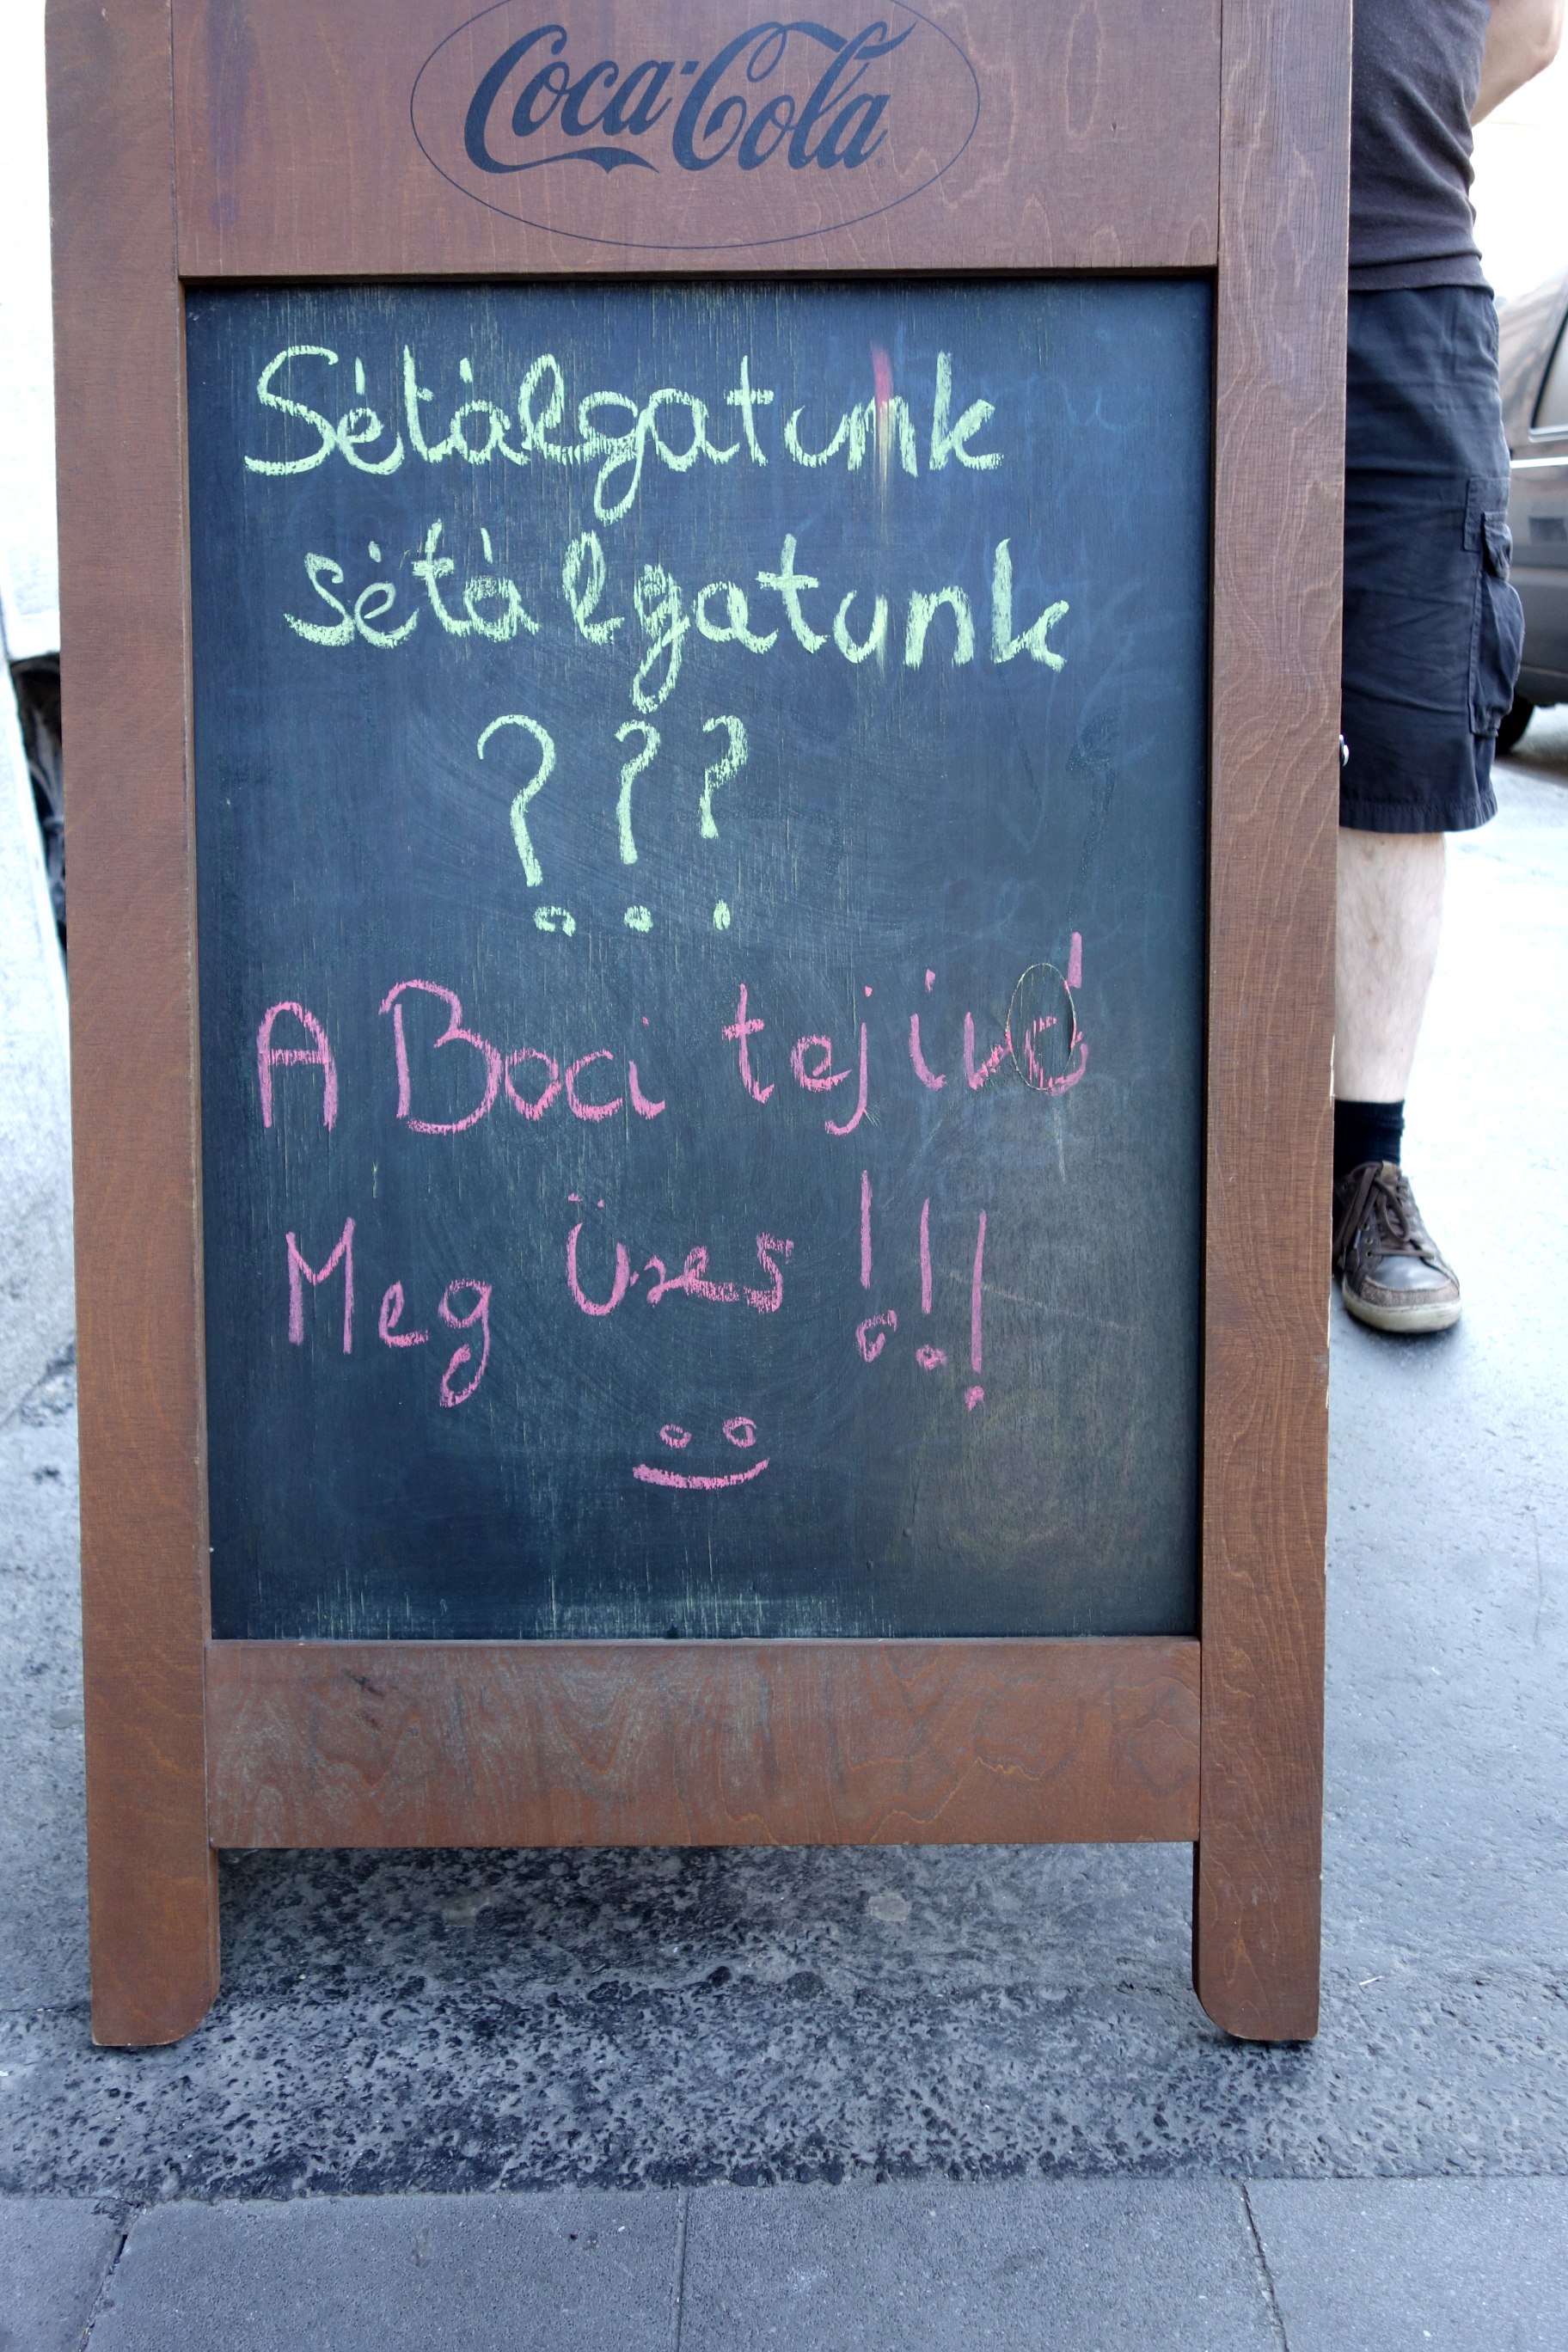 Coca-Cola
Sétálgatunk
sétálgatunk
???
A Boci tejivó
Meg Üzes !!!